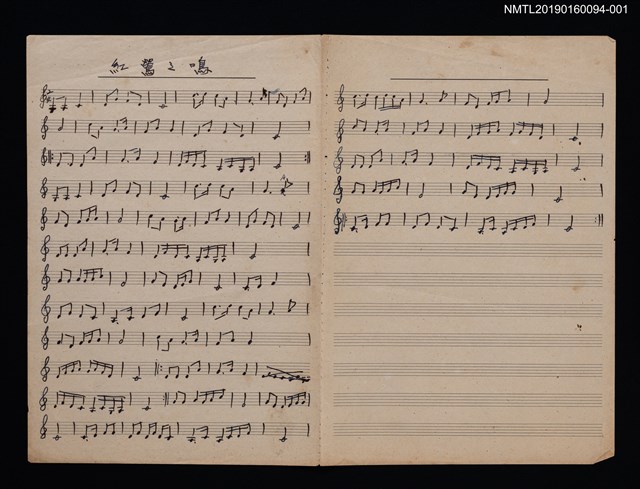 NMTL20190160094-001
紅鶯之鳴